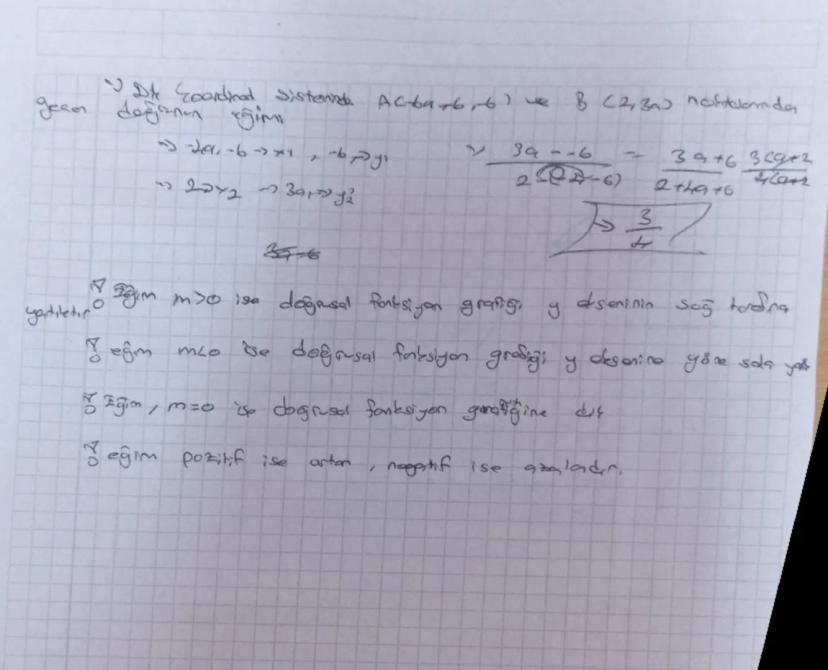 Dik koordinat sisteminde A(-6a-6, -6) ve B (2,3a) noktalarından
geçen doğrunun eğimi
⇒ -4a, -6 → x1, -6 → y1
⇒ 2 → x2 → 3a → y2
3a - -6 / 2 - (-4a-6) = 3a+6 / 2+4a+6 3(a+2 / 4(a+2
⇒ 3/4
Eğim m>0 ise doğrusal fonksiyon grafiği y ekseninin sağ tarafına
yatıktır
eğim m<0 ise doğrusal fonksiyon grafiği y eksenine göre sola
Eğim, m=0 ise doğrusal fonksiyon grafiğine dik
eğim pozitif ise artan, negatif ise azalandır.